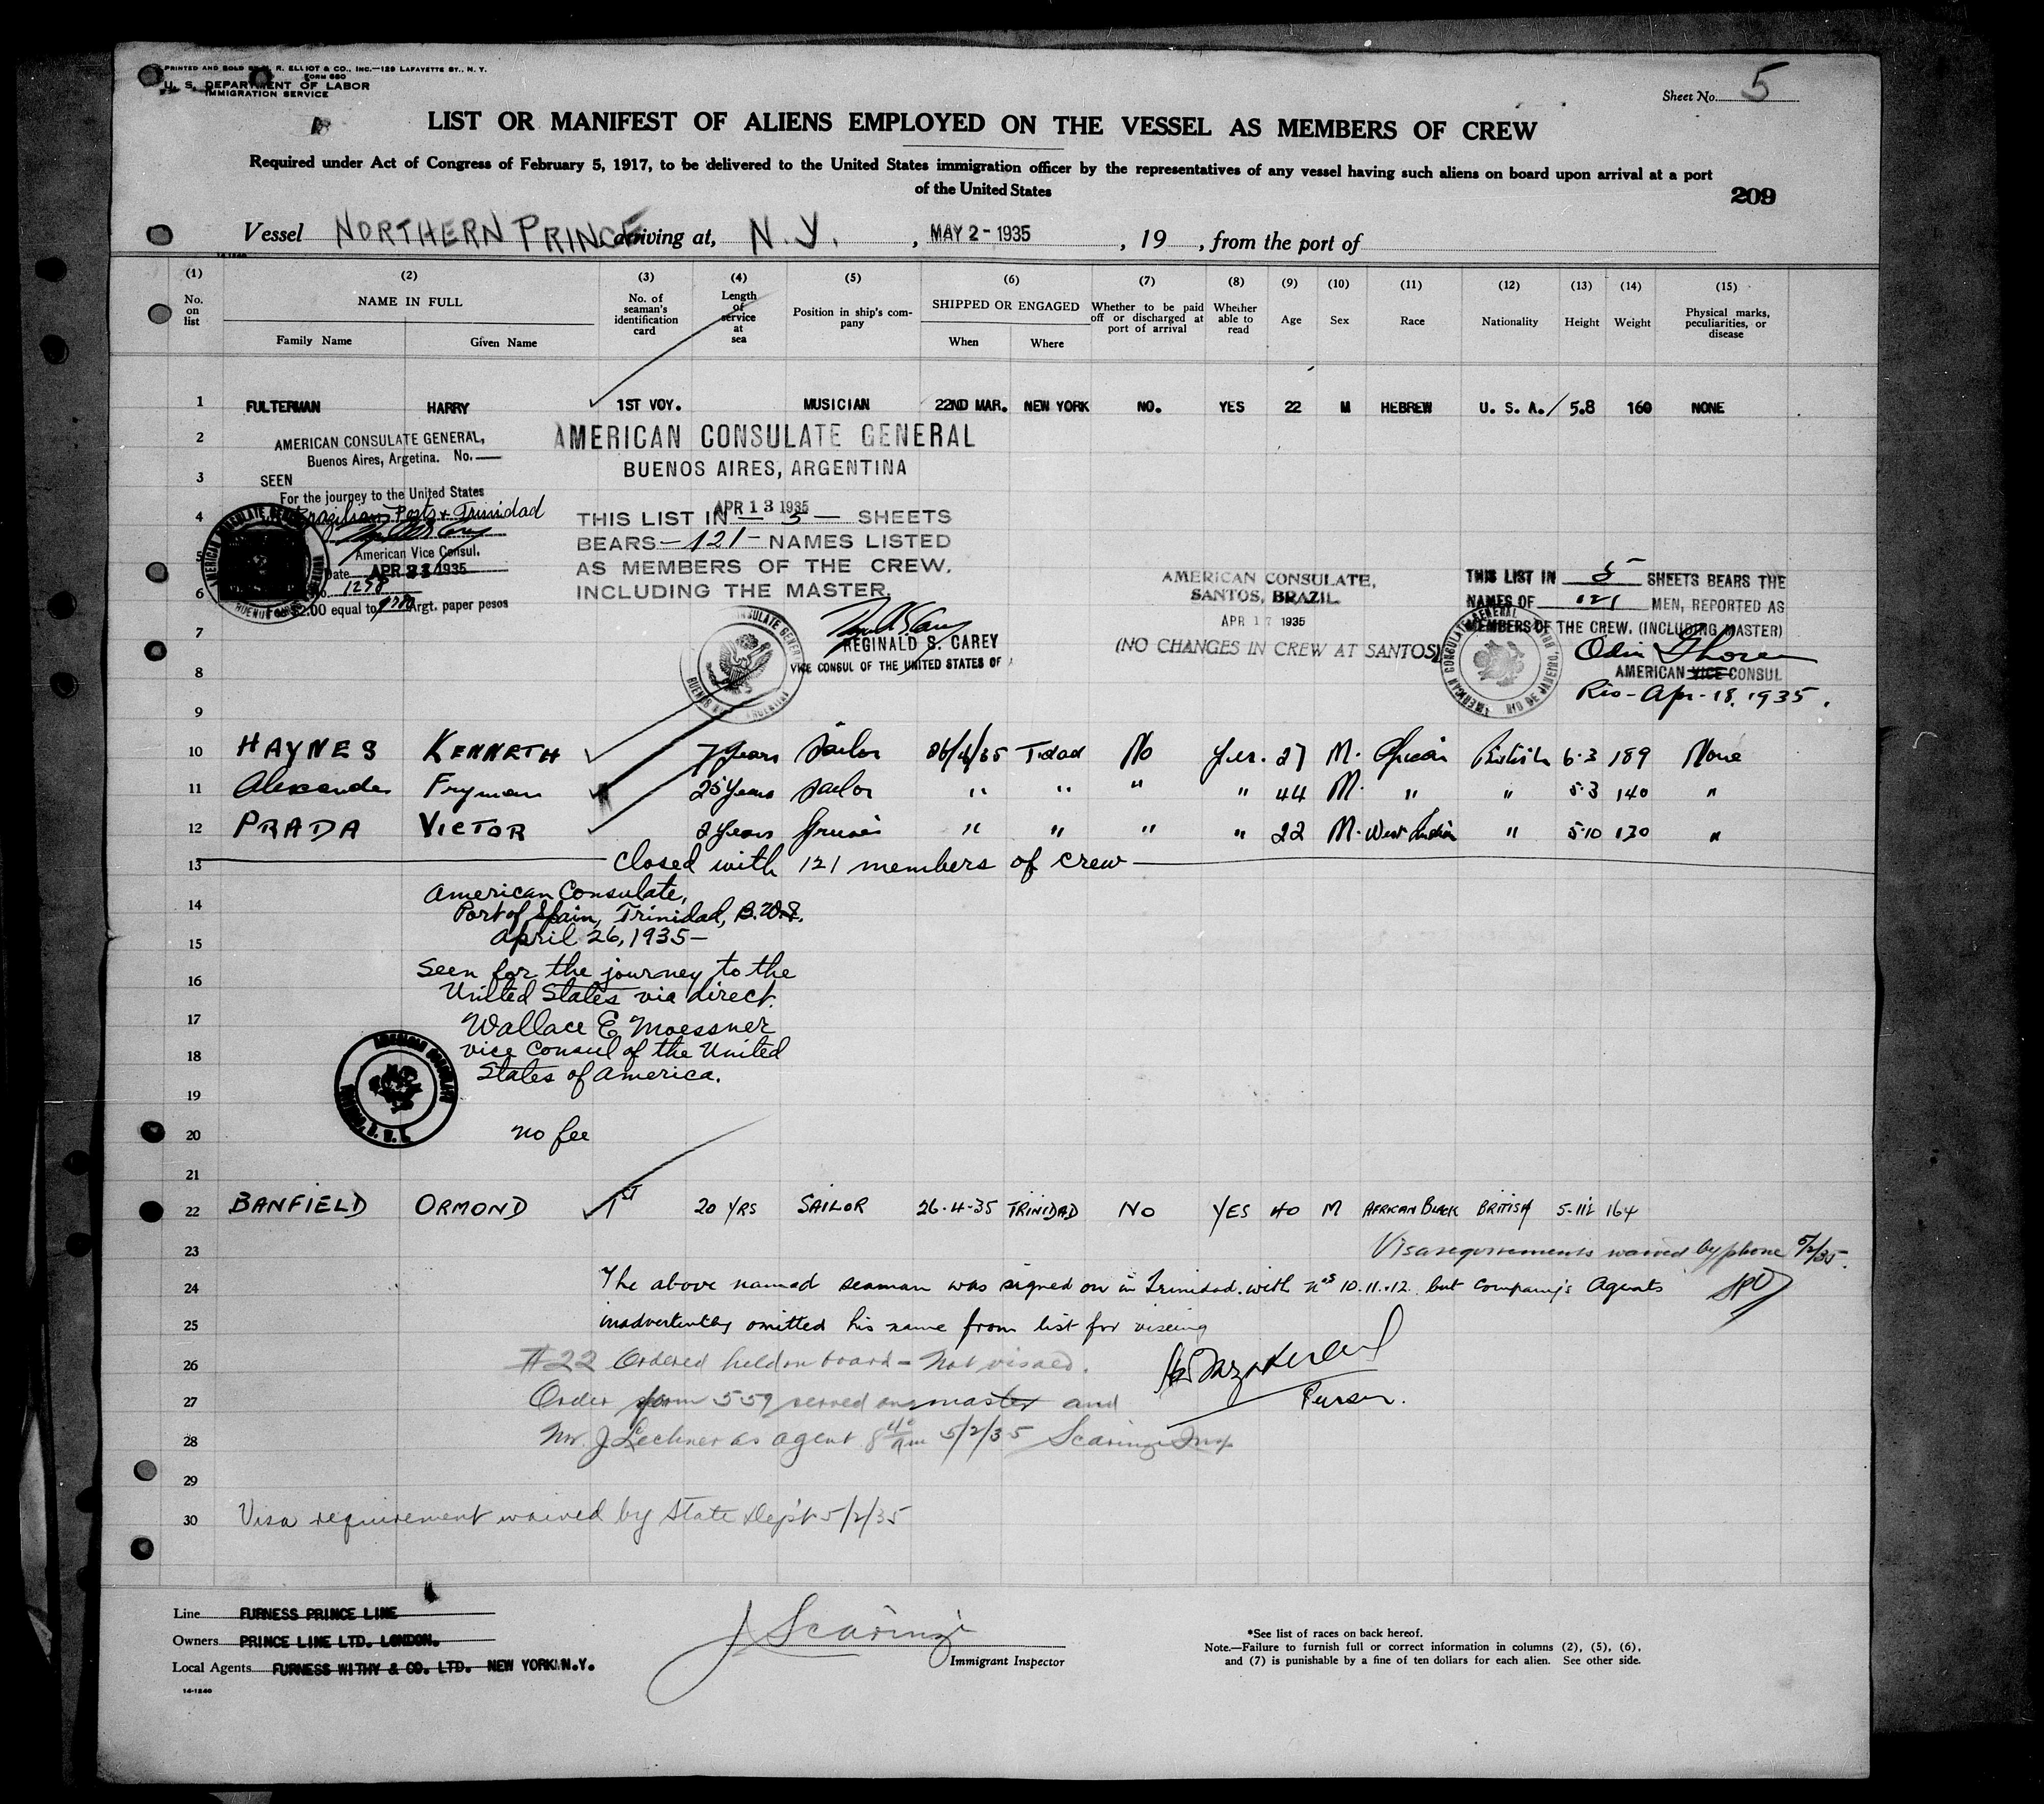 PRINTED AND SOLD BY R. ELLIOT & CO., INC.—129 LAFAYETTE ST., N. Y.
FORM 680
U. S. DEPARTMENT OF LABOR
IMMIGRATION SERVICE
Sheet No. 5
LIST OR MANIFEST OF ALIENS EMPLOYED ON THE VESSEL AS MEMBERS OF CREW
Required under Act of Congress of February 5, 1917, to be delivered to the United States immigration officer by the representatives of any vessel having such aliens on board upon arrival at a port
of the United States
209
Vessel NORTHERN PRINCE arriving at, N.Y. , MAY 2 - 1935 , 19 , from the port of
14-1240
(1) (2) (3) (4) (5) (6) (7) (8) (9) (10) (11) (12) (13) (14) (15)
No. on list NAME IN FULL Family Name Given Name No. of seaman's identification card Length of service at sea Position in ship's company SHIPPED OR ENGAGED When Where Whether to be paid off or discharged at port of arrival Whether able to read Age Sex Race Nationality Height Weight Physical marks, peculiarities, or disease
1 FULTERMAN HARRY 1ST VOY. MUSICIAN 22ND MAR. NEW YORK NO. YES 22 M HEBREW U. S. A. 5.8 160 NONE
2
AMERICAN CONSULATE GENERAL,
Buenos Aires, Argetina. No.
3
SEEN
For the journey to the United States
4
Brazilian Ports & Trinidad
5
American Vice Consul.
Date APR 1935
6
No. 1258
Fee $2.00 equal to Argt. paper pesos
AMERICAN CONSULATE GENERAL
BUENOS AIRES, ARGENTINA
APR 13 1935
THIS LIST IN — 5 — SHEETS
BEARS — 121 — NAMES LISTED
AS MEMBERS OF THE CREW,
INCLUDING THE MASTER.
REGINALD S. CAREY
VICE CONSUL OF THE UNITED STATES OF
AMERICAN CONSULATE,
SANTOS, BRAZIL
APR 17 1935
(NO CHANGES IN CREW AT SANTOS)
THIS LIST IN 5 SHEETS BEARS THE
NAMES OF 121 MEN, REPORTED AS
MEMBERS OF THE CREW. (INCLUDING MASTER)
AMERICAN VICE CONSUL
Rio - Apr. 18. 1935.
AMERICAN CONSULATE GENERAL RIO DE JANEIRO
7
8
9
10 HAYNES KENNETH 7 years Sailor 26/4/35 T.dad No Yes. 27 M. African British 6.3 189 None
11 Alexander Fryman 25 years Sailor " " " " 44 M. " " 5.3 140 "
12 PRADA VICTOR 2 years " " " " 22 M. West Indian " 5.10 130 "
13 closed with 121 members of crew
14 American Consulate,
Port of Spain, Trinidad, B.W.I.
15 April 26, 1935-
16 Seen for the journey to the
United States via direct.
17 Wallace E. Moessner
18 vice consul of the United
States of America.
19
20 No fee
21
22 BANFIELD ORMOND 1ST 20 YRS SAILOR 26.4.35 TRINIDAD NO YES 40 M AFRICAN BLACK BRITISH 5-11½ 164
23 Visa requirements waived by phone 5/2/35.
24 The above named seaman was signed on in Trinidad with Nos 10.11.12. but company's Agents
25 inadvertently omitted his name from list for viseing
26 #22 Ordered held on board - Not visaed.
27 Order form 559 served on master and
Purser.
28 Mr. J Lechner as agent 8 40 am 5/2/35 Scaringi Insp
29
30 Visa requirement waived by State Dept 5/2/35
Line FURNESS PRINCE LINE
Owners PRINCE LINE LTD. LONDON.
Local Agents FURNESS WITHY & CO. LTD. NEW YORK N.Y.
14-1240
J Scaringi
Immigrant Inspector
*See list of races on back hereof.
Note.—Failure to furnish full or correct information in columns (2), (5), (6),
and (7) is punishable by a fine of ten dollars for each alien. See other side.